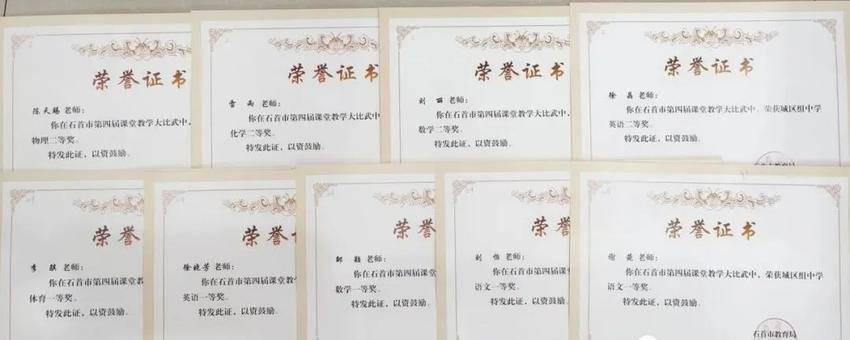 荣誉证书
陈天赐 老师：
你在石首市第四届课堂教学大比武中，
物理二等奖。
特发此证，以资鼓励。
荣誉证书
雷雨 老师：
你在石首市第四届课堂教学大比武中，
化学二等奖。
特发此证，以资鼓励。
荣誉证书
刘丽 老师：
你在石首市第四届课堂教学大比武中，
数学二等奖。
特发此证，以资鼓励。
荣誉证书
徐 老师：
你在石首市第四届课堂教学大比武中，荣获城区组中学
英语二等奖。
特发此证，以资鼓励。
石首市教育局
荣誉
李 老师：
你在石首市第四届课堂教
体育一等奖。
特发此证，以资鼓励。
荣誉
徐晓芳 老师：
你在石首市第四届课堂教
英语一等奖。
特发此证，以资鼓励。
荣誉
颖 老师：
你在石首市第四届课堂
数学一等奖。
特发此证，以资鼓励。
荣誉
刘怡 老师：
你在石首市第四届课
语文一等奖。
特发此证，以资鼓励。
荣誉证书
谢 老师：
你在石首市第四届课堂教学大比武中，荣获城区组中学
语文一等奖。
特发此证，以资鼓励。
石首市教育局